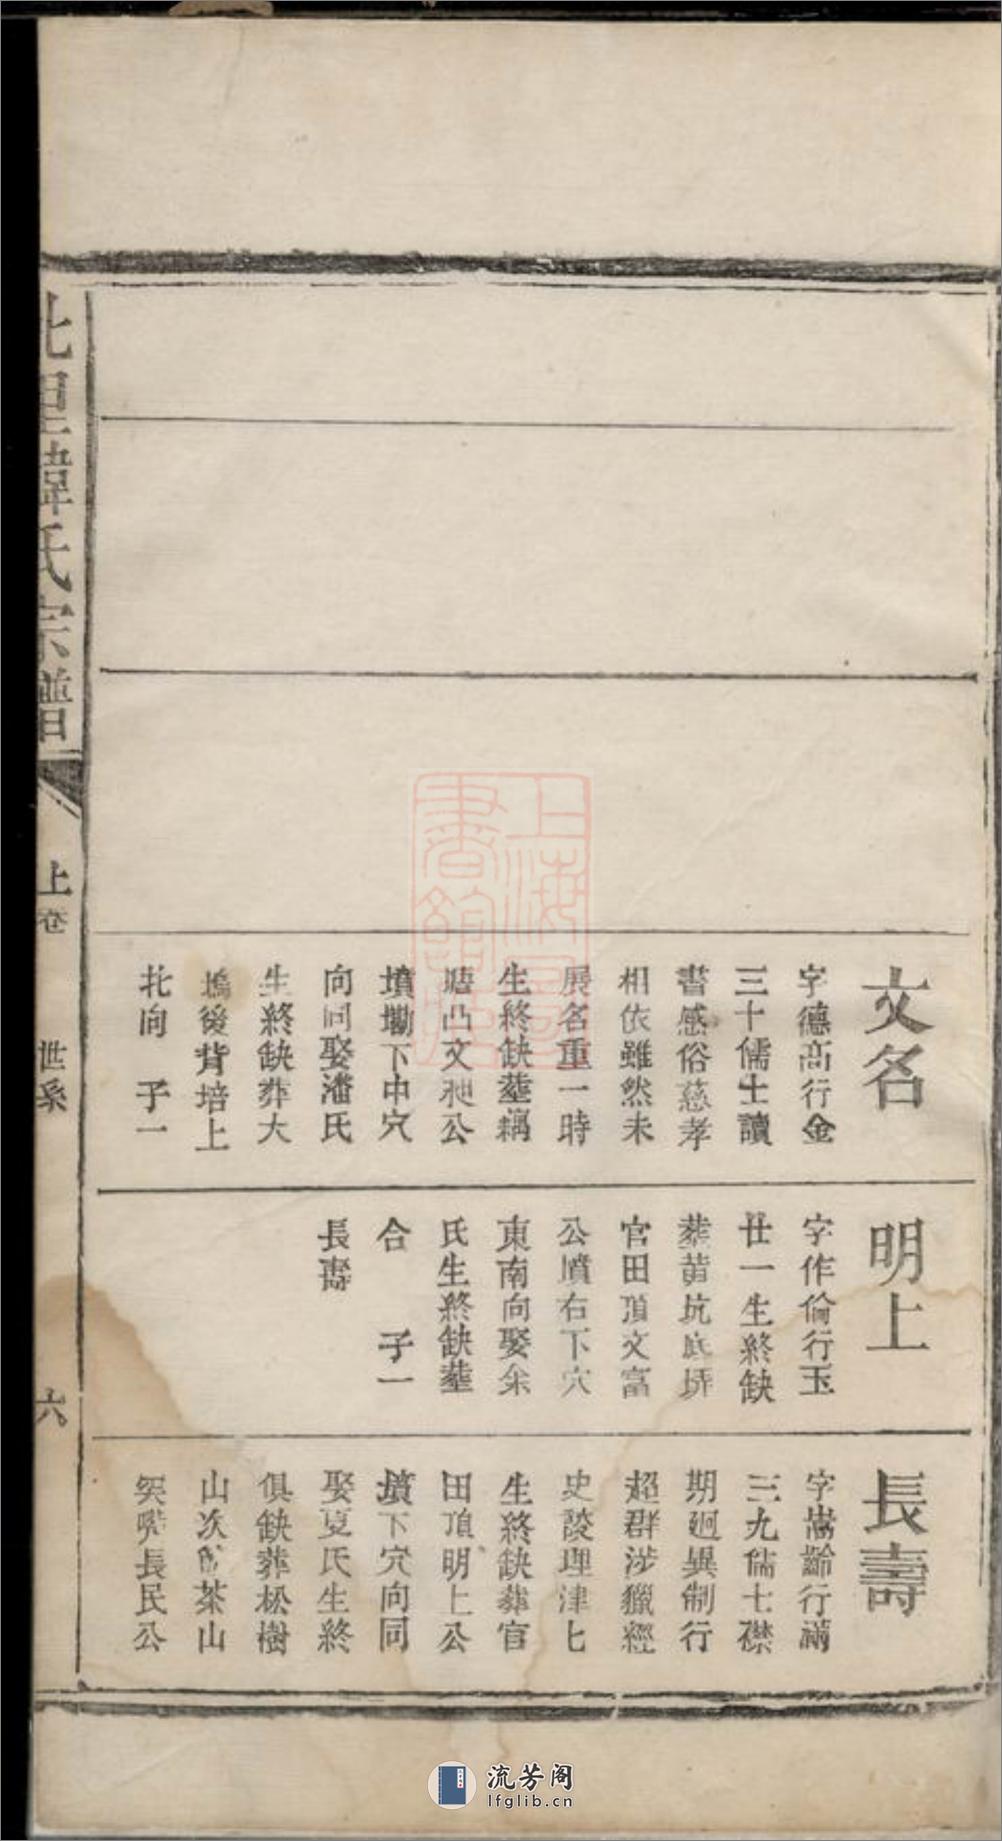 文名
字德高行金
三十儒士讀
書感俗慈孝
相依雖然未
展名重一時
生終缺塟耦
塘凸文昶公
墳勘下中穴
向同娶潘氏
生終缺葬大
塢後背培上
北向 子一
明上
字作倫行玉
廿一生終缺
葬黄坑底塝
官田頂文富
公墳右下穴
東南向娶余
氏生終缺塟
合 子一
長壽
長壽
字嵩齡行滿
三九儒士襟
期廻異制行
超群涉獵經
史談理津七
生終缺葬官
田頂明上公
墳下穴向同
娶夏氏生終
俱缺葬松樹
山次 茶山
突嘴長民公
北里韓氏宗譜
上卷
世系
六
上海圖書館藏
流芳阁
lfglib.cn